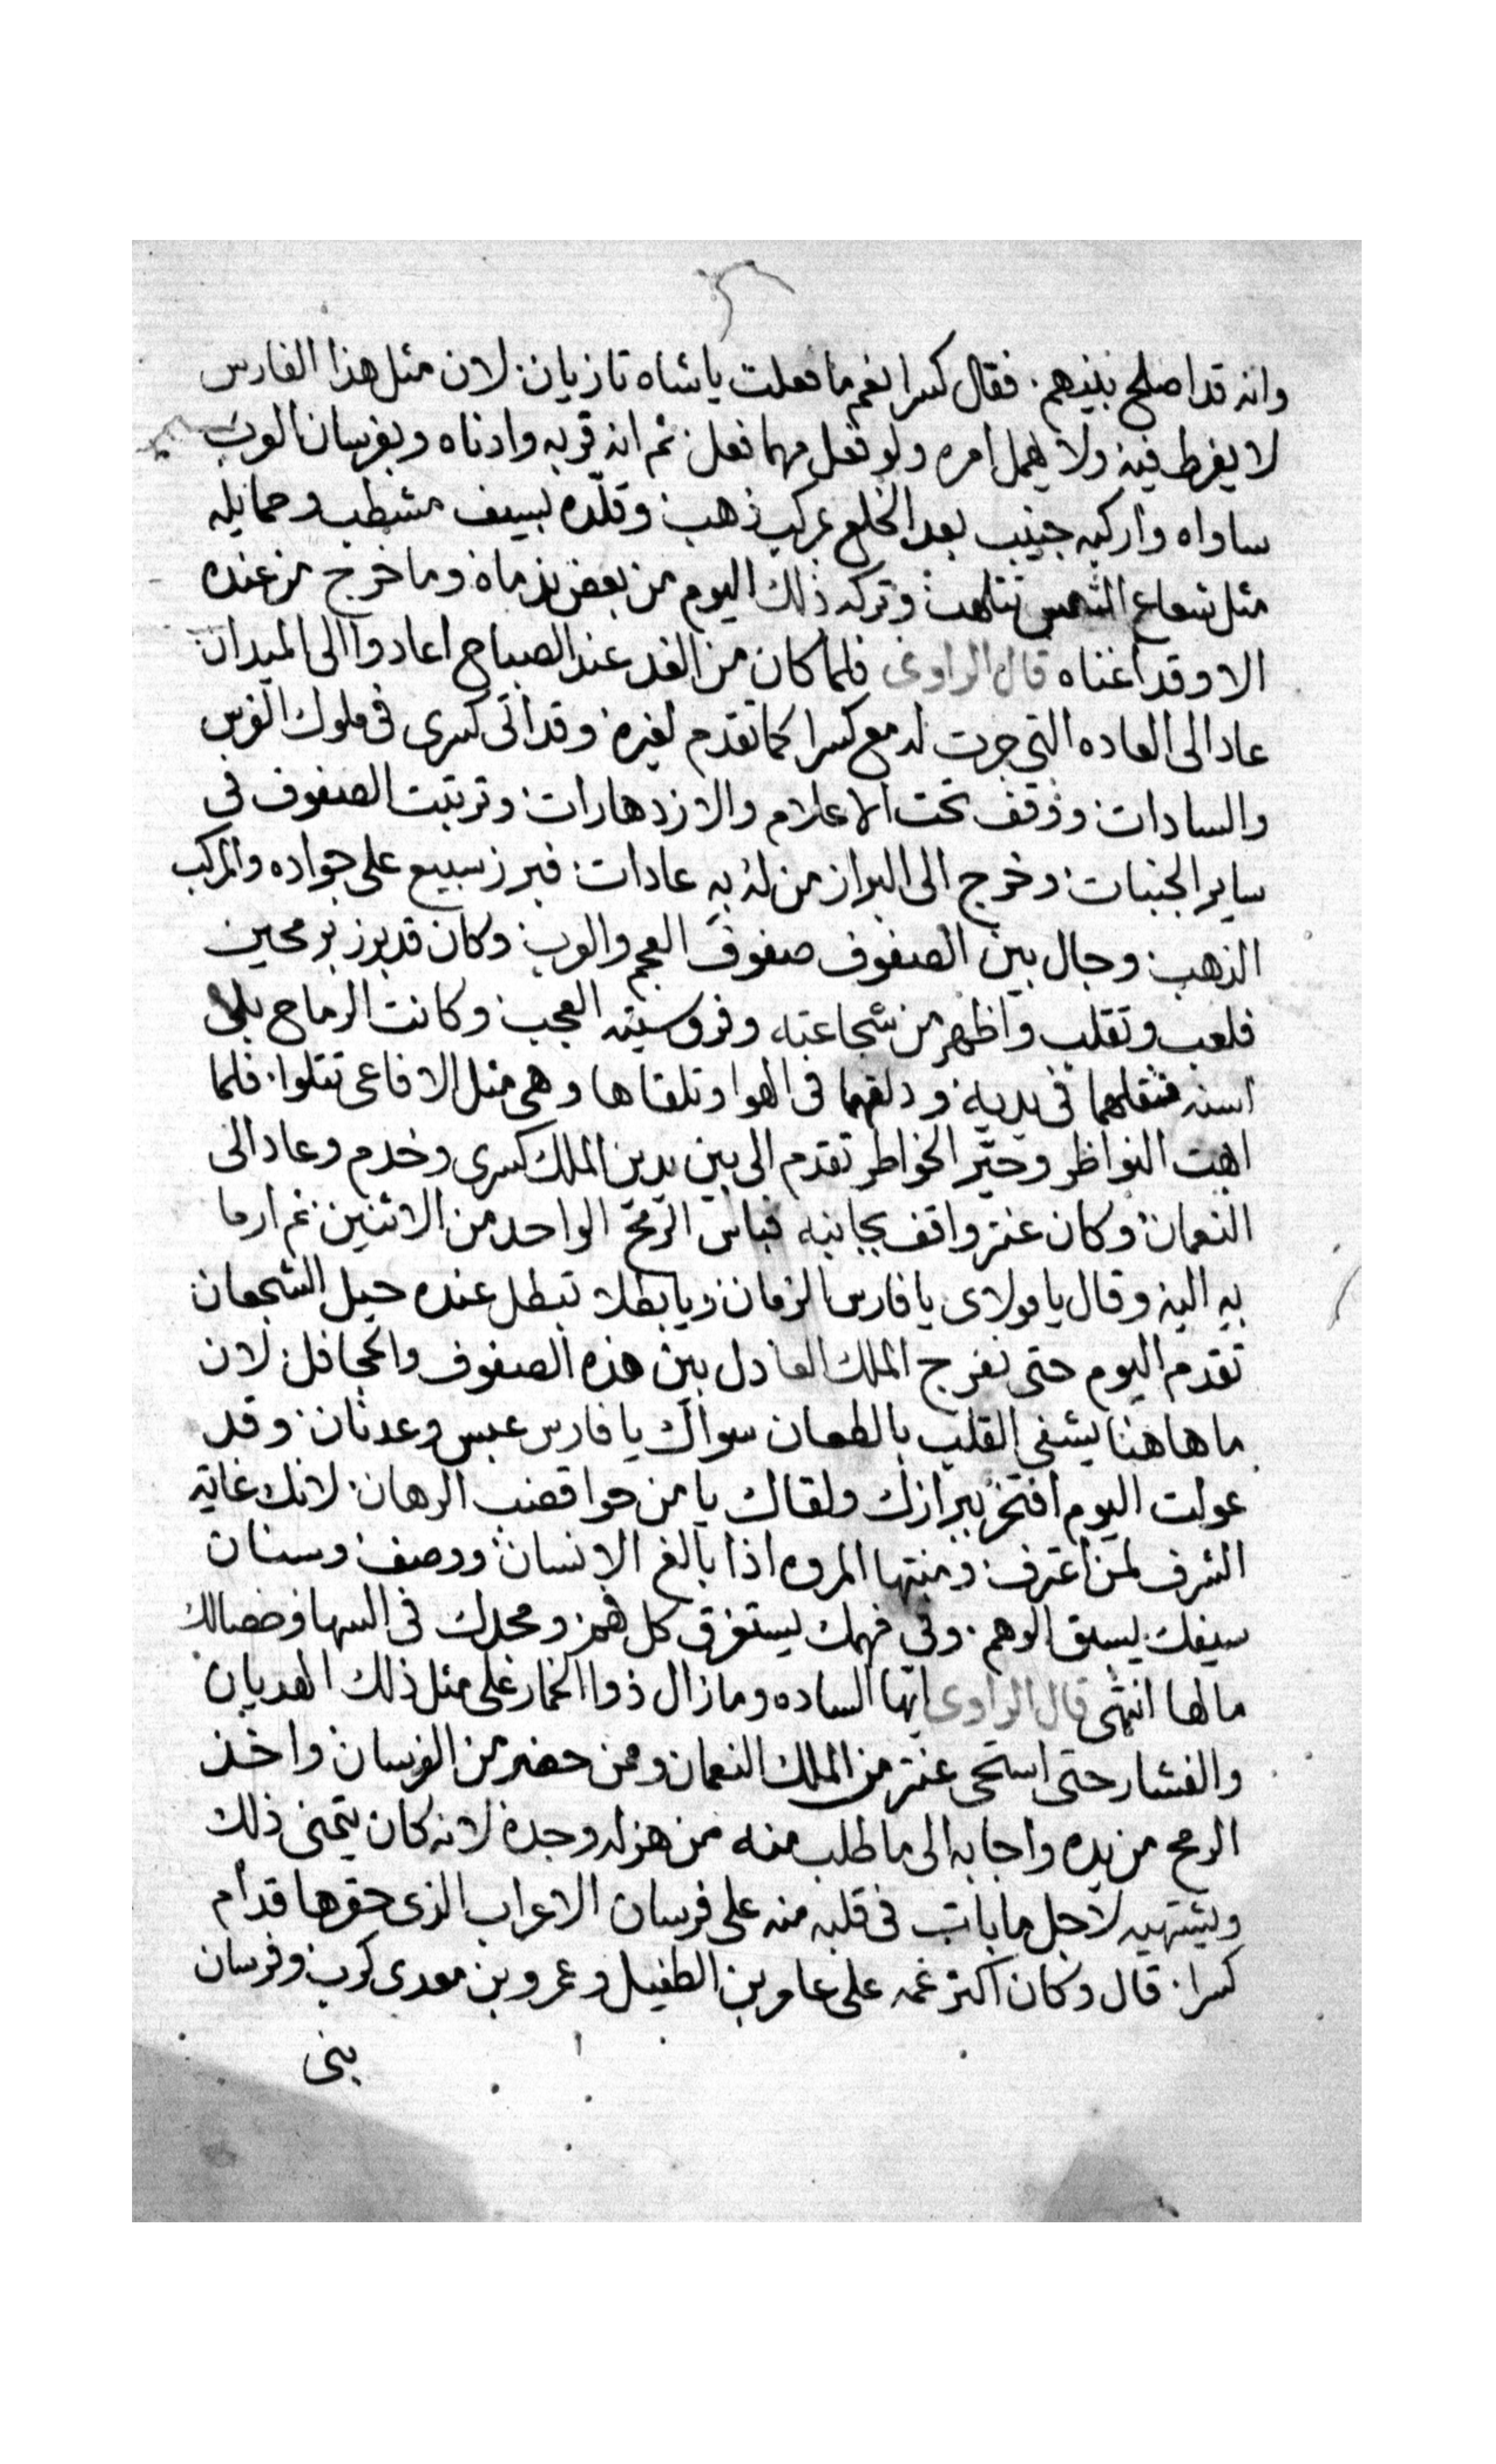 وانه قد اصلح بينهم . فقال كسرا نعم ما فعلت يا شاه تازيان . لان مثل هذا الفارس
لا يفرط فيه ولا يهمل امره ولو فعل مهما فعل . ثم انه قربه وادناه وبفرسان العرب
ساواه واركبه جنيب بعد الخلع بمركب ذهب . وقلّده بسيف مشطب وحمايله
مثل شعاع الشمس تتلهب وتركه ذلك اليوم من بعض ندماه وما خرج من عنده
الا وقد اغناه قال الراوى فلما كان من الغد عند الصباح اعادوا الى الميدان
عاد الى العاده التي جرت له مع كسرا كما تقدم لغيره وقد اتى كسرى فى ملوك الفرس
والسادات . ووقف تحت الاعلام والازدهارات . وترتبت الصفوف في
ساير الجنبات . وخرج الى البراز من له به عادات . فبرز سبيع على جواده والمركب
الذهب . وجال بين الصفوف صفوف العجم والعرب وكان قد برز برمحين
فلعب وتقلب واظهر من شجاعته وفروسيته العجب . وكانت الرماح بلا
اسنه فنقلهما فى يديه ودلقهما فى الهوا وتلقاها وهى مثل الافاعى تتلوا . فلما
ابهت النواظر وحيّر الخواطر تقدم الى بين يدين الملك كسرى وخدم وعاد الى
النعمان وكان عنتر واقف بجانبه فباس الرمح الواحد من الاثنين ثم ارما
به اليه وقال يا مولاى يا فارس الزمان ويا بطلا تبطل عنده حيل الشجعان
تقدم اليوم حتى نفرج الملك العادل بين هذه الصفوف والجحافل . لان
ما هاهنا يشفى القلب بالطعان سواك يا فارس عبس وعدنان . وقد
عولت اليوم افتخر ببرازك ولقاك يا من حوا قصب الرهان . لانك غاية
الشرف لمن اعترف . ومنتها المروه اذا بالغ الانسان ووصف وسنان
سيفك يسبق الوهم . وفى فهمك يستغرق كل فهم ومجدك فى السها وخصالك
مالها انتهى قال الراوى ايها الساده وما زال ذوا الخمار على مثل ذلك الهديان
والفشار حتى استحى عنتر من الملك النعمان ومن حضر من الفرسان واخذ
الرمح من يده واجابه الى ما طلب منه من هزله وجده لانه كان يتمنى ذلك
ويشتهيه لاجل ما بات فى قلبه منه على فرسان الاعراب الذى حقرها قدام
كسرا . قال وكان اكثر غمه على عامر بن الطفيل وعمرو بن معدى كرب وفرسان
بنى